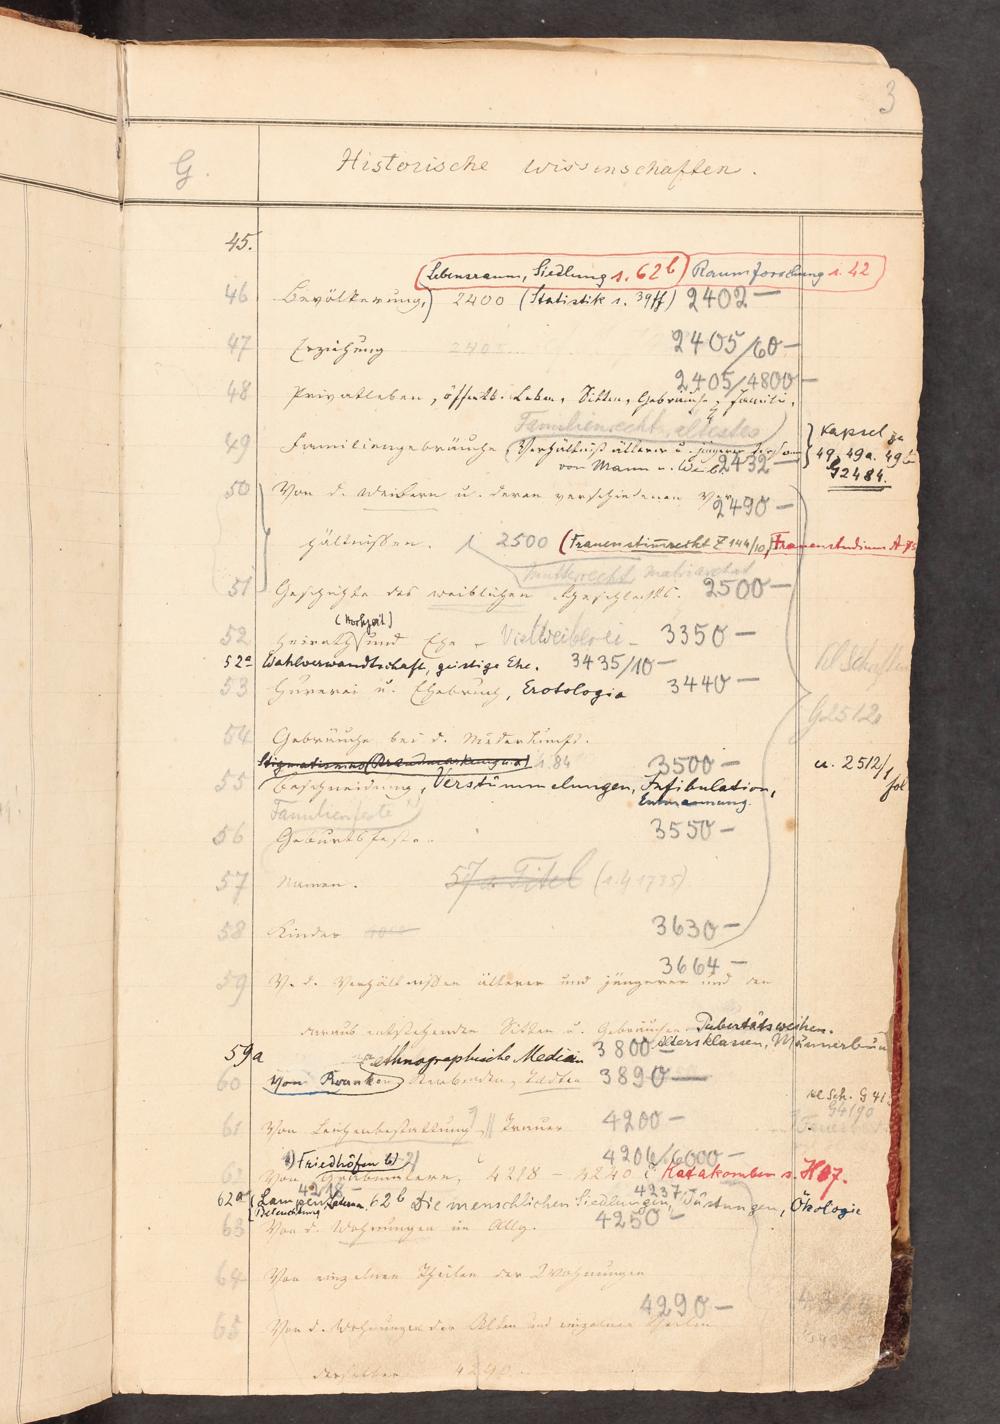 3
G. Historische Wissenschaften.
45.
(Lebensraum, Siedlung s. 62b) Raumforschung s. 42
46 Bevölkerung, 2400 (Statistik s. 39ff) 2402 —
47 Erziehung 2405 2405/60 —
2405/4800 —
48 Privatleben, öffentl. Leben, Sitten, Gebräuche, Familie,
Familienrecht, ältestes
49 Familiengebräuche (Verhältniß älterer u. jüngerer Kapsel zu
von Mann u. Weib 2432 — 49, 49a. 49b
G2484.
50 Von d. Weibern u. deren verschiedenen Ver
2490 —
hältnissen. 2500 (Frauenstimmrecht Z 144/10, Frauenstudium A
Mutterrecht, Matriarchat
51 Geschichte des weiblichen Geschlechts. 2500 —
(Hochzeit)
52 Heirath und Ehe — Vielweiberei — 3350 —
52a Wahlverwandtschaft, geistige Ehe. 3435/10 —
53 Hurerei u. Ehebruch, Erotologia 3440 —
Kl Schriften
G2512
54 Gebräuche bei d. Niederkunft.
Stigmatismus (Brandmarkung u.a.) s. 84 3500 — u. 2512/1 fol
55 Beschneidung, Verstümmelungen, Infibulation,
Entmannung.
Familienfeste
56 Geburtsfeste. 3550 —
57 Namen. 57a Titel (s. G 1735)
58 Kinder 3630 —
3664 —
59 V. d. Verhältnissen älterer und jüngerer und den
daraus entstehenden Sitten u. Gebräuchen Pubertätsweihen.
Altersklassen, Männerbün
59a ethnographische Medicin 3800 —
60 Von Kranken, Sterbenden, Todten 3890 —
kl Sch. G 41
G4190
61 Von Leichenbestattung, Trauer 4200 —
1) Friedhöfen b) 2) 4206/6000 —
62 Von Grabmälern, 4218 — 4240 Katakomben s. H 87.
4218 — 4237
62a (Lampen, Laterne, 62b Die menschlichen Siedlungen, Wüstungen, Ökologie
Beleuchtung
63 Von d. Wohnungen im Allg. 4250 —
64 Von einzelnen Theilen der Wohnungen
4290 —
65 Von d. Wohnungen der Alten und einzelner Theilen
derselben 4290